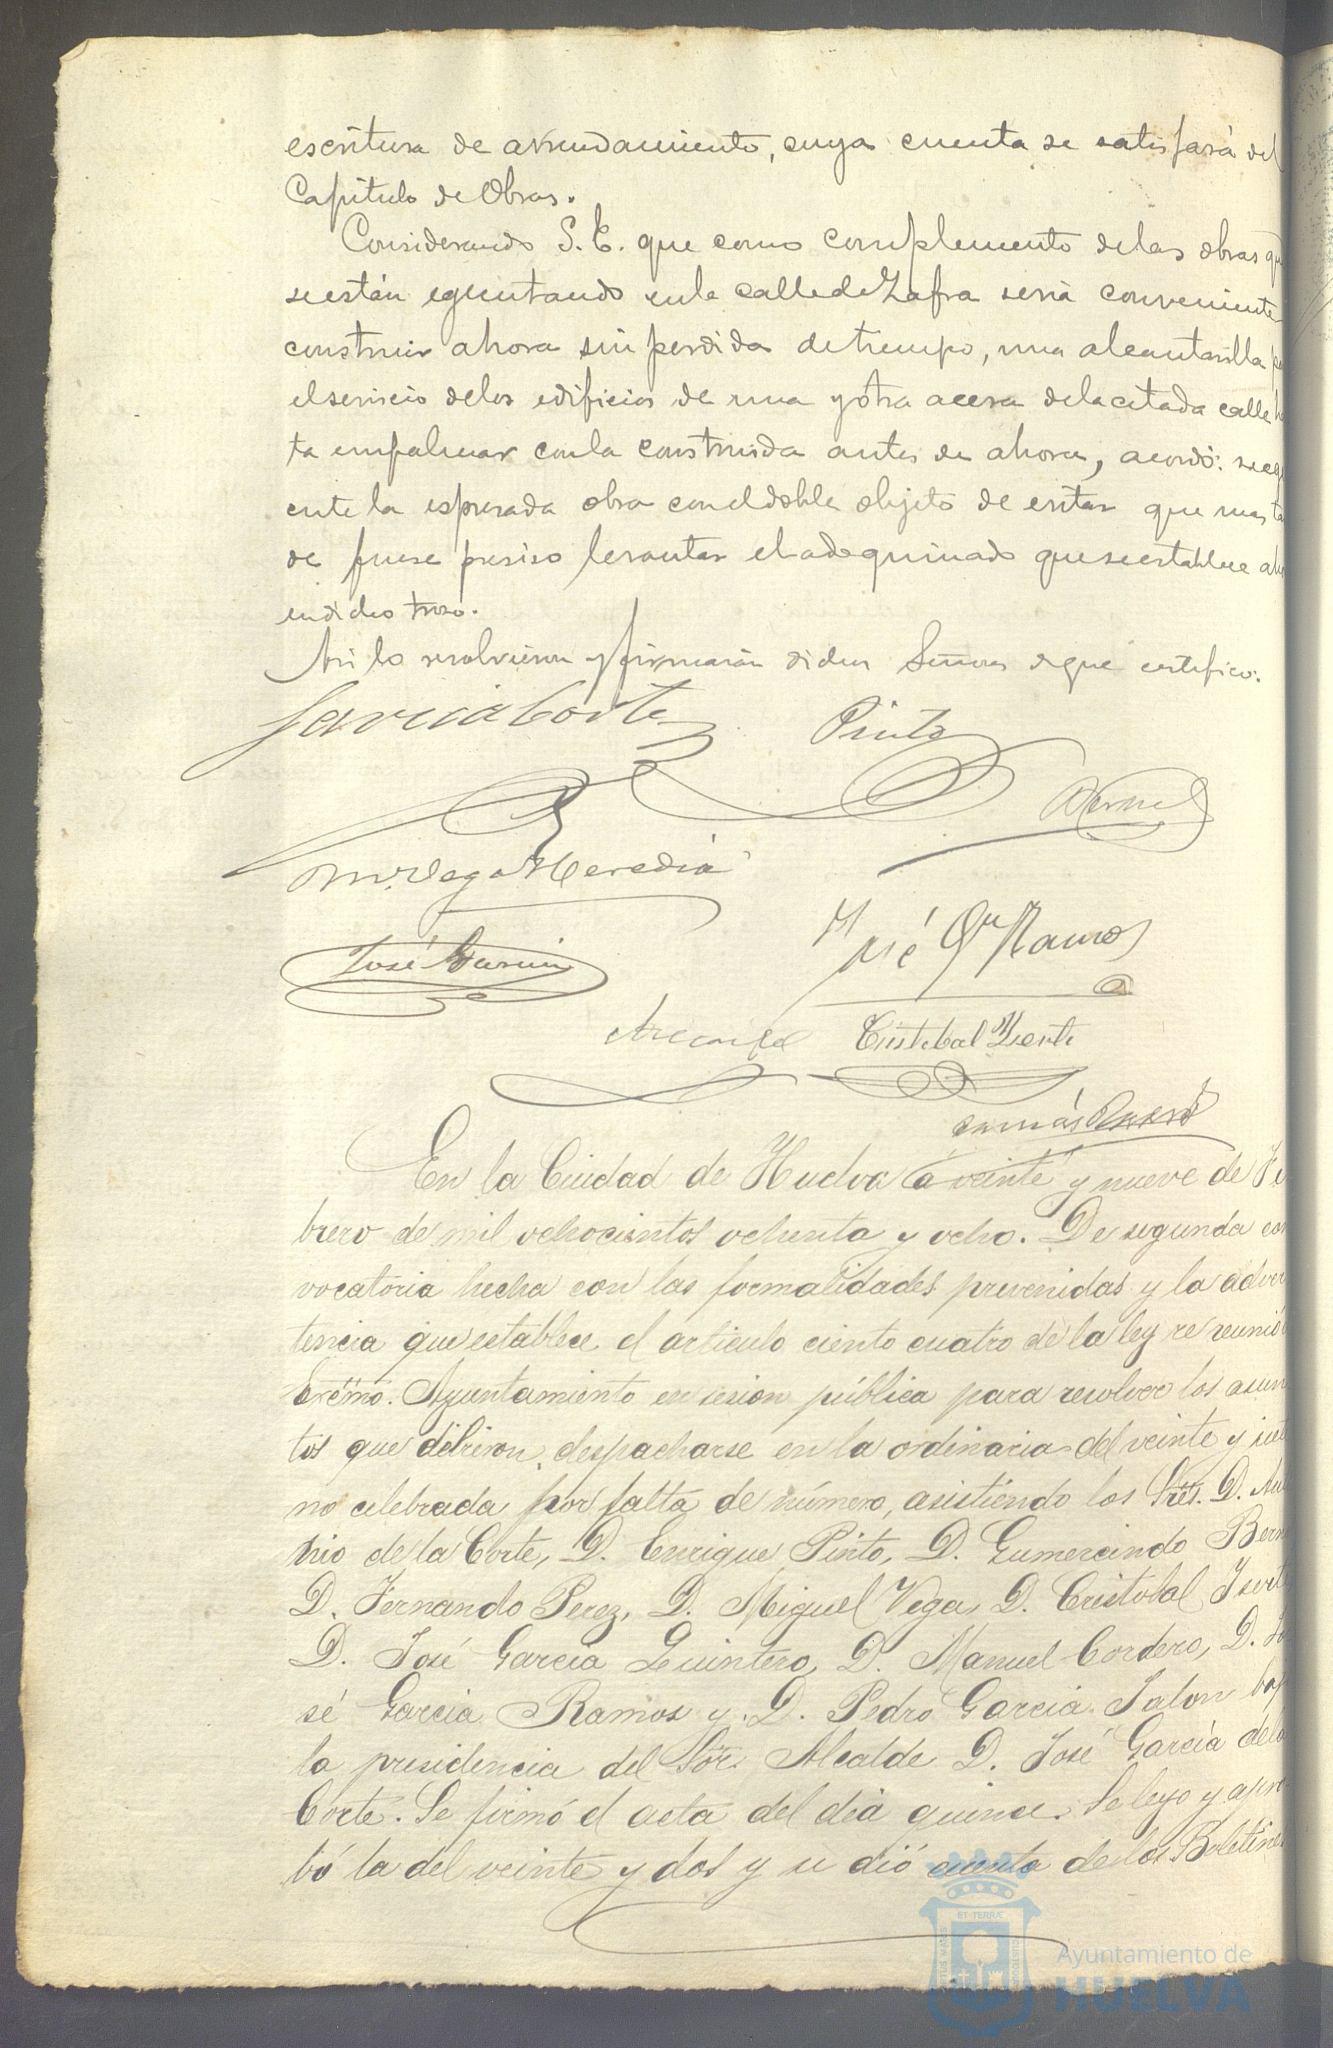 escritura de arrendamiento, cuya cuenta se satisfará del
Capitulo de Obras.
Considerando S. E. que como complemento delas obras que
seestán egecutando enla calledeZafra seria conveniente
construir ahora sin perdida detiempo, una alcantarilla pa
elservicio delos edificios de una yotra acera delacitada calle ha
ta empalmar conla construida antes de ahora, acordó: se ege
cute la espresada obra coneldoble objeto de evitar que mas ta
de fuese presiso levantar eladoquinado queseestablece aho
endicho trozo.
Asi lo resolvieron y firmarán dichos Señores deque certifico.
Garcia Corte
Pinto
Bernal
M. Vega Heredia
José Garcia
José Ga Ramos
Cristobal Yserte
Tomás
En la Ciudad de Huelva á veinte y nueve de Fe
brero de mil ochocientos ochenta y ocho. De segunda con
vocatoria hecha con las formalidades prevenidas y la adver
tencia que establece el articulo ciento cuatro de la ley se reunió
Excmo. Ayuntamiento en sesion pública para resolver los asun
tos que debieron despacharse en la ordinaria del veinte y siet
no celebrada por falta de número, asistiendo los Sres. D. An
nio de la Corte, D. Enrique Pinto, D. Gumercindo Bern
D. Fernando Perez, D. Miguel Vega, D. Cristobal Yserte
D. José Garcia Quintero, D. Manuel Cordero, D. Jo
sé Garcia Ramos y D. Pedro Garcia Jalon bajo
la presidencia del Sor. Alcalde D. José García dela
Corte. Se firmó el acta del dia quince. Se leyo y apro
bó la del veinte y dos y se dió cuenta delos Boletines
ET TERRAE
Ayuntamiento de
HUELVA